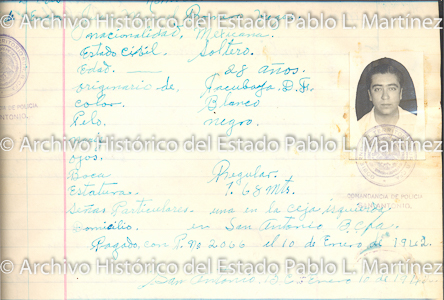 © Archivo Histórico del Estado Pablo L. Martínez
nacionalidad, Mexicana.
Estado Civil. Soltero.
Edad. 28 años.
originario de, Tacubaya, D. F.
© Archivo Histórico del Estado Pablo L. Martínez
color. Blanco
Pelo. negro.
© Archivo Histórico del Estado Pablo L. Martínez
ojos.
Boca Regular.
Estatura. 1.68 Mts.
COMANDANCIA DE POLICIA
© Archivo Histórico del Estado Pablo L. Martínez
Señas Particulares. una en la ceja izquierda
Domicilio. en San Antonio
Pagado, con P. No 2066 el 10 de Enero de 1942.
© Archivo Histórico del Estado Pablo L. Martínez
San Antonio, Enero 10 de